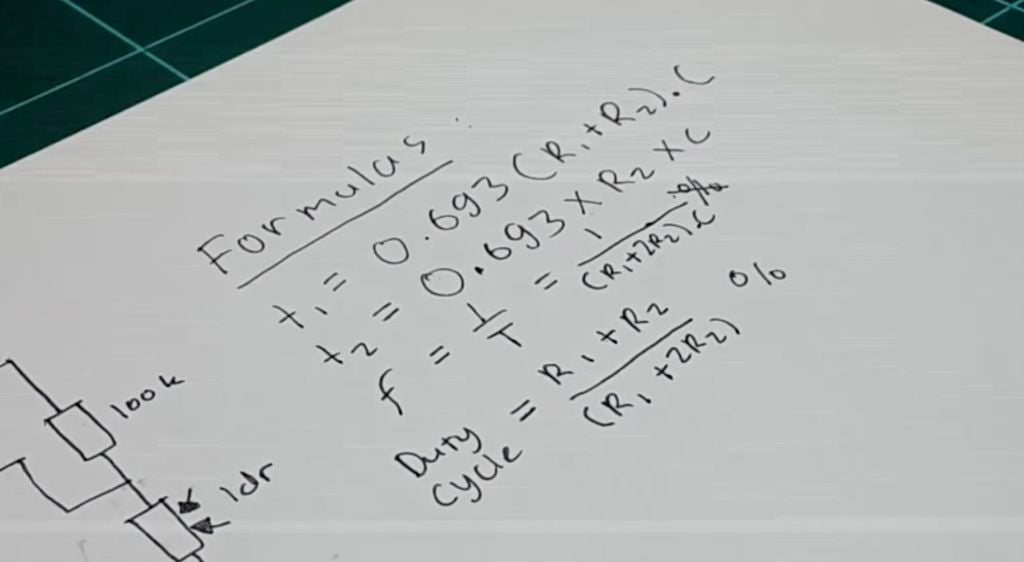 Formulas :
t₁ = 0.693 (R₁+R₂).C
t₂ = 0.693 X R₂ X C
f = 1/T = 1/(R₁+2R₂).C
Duty cycle = R₁+R₂/(R₁+2R₂) %
100k
ldr